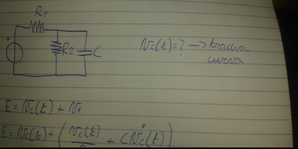 R1
R2 C
Vc(t)=? → traccia
curva
E = Vc(t) + V1
E = Vc(t) + ( Vc(t) + C V̇c(t) )